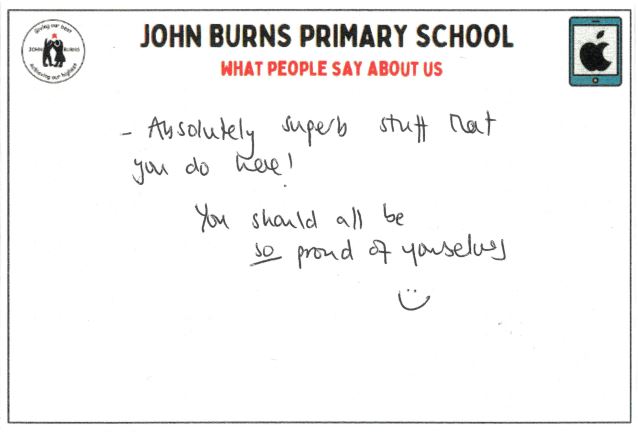 Giving our best
JOHN BURNS
Achieving our highest
JOHN BURNS PRIMARY SCHOOL
WHAT PEOPLE SAY ABOUT US
- Absolutely superb stuff that
you do here!
You should all be
so proud of yourselves